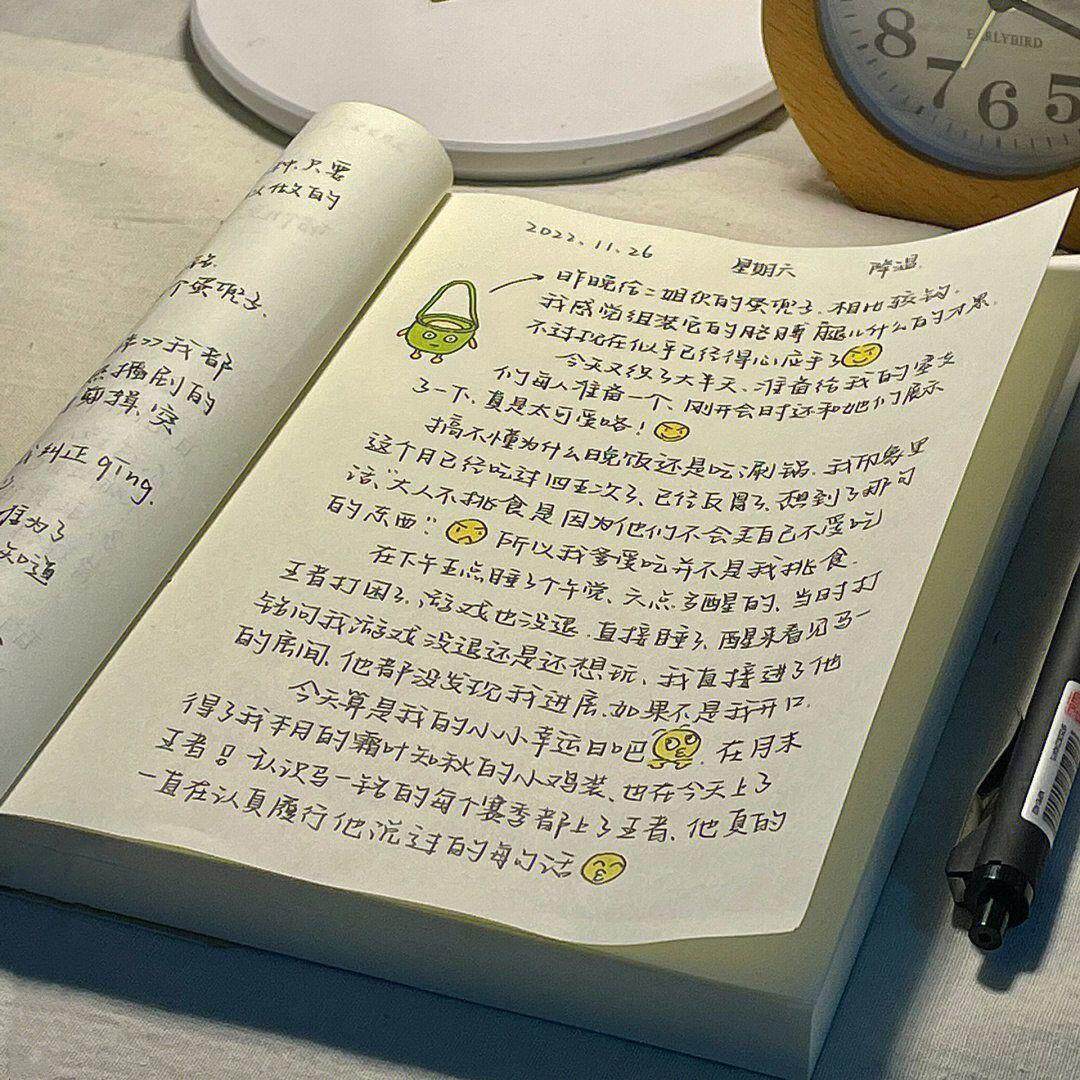 8
7
6
5
EARLYBIRD
只要
做的
个蛋兜子.
我都
播剧的
纠正 qīng.
知道
2022.11.26 星期六 降温.
昨晚给二姐织的蛋兜子、相比较钩、
我感觉组装它的胳膊腿儿什么的才累.
不过现在似乎已经得心应手了
今天又织了大半天、准备给我的室友
们每人准备一个、刚开会时还和她们展示
了一下、真是太可爱咯!
搞不懂为什么晚饭还是吃涮锅、我印象里
这个月已经吃过四五次了、已经反胃了、想到了那句
话“大人不挑食是因为他们不会买自己不爱吃
的东西” 所以我爹爱吃并不是我挑食.
在下午五点睡了个午觉、六点多醒的、当时打
王者打困了、游戏也没退、直接睡了、醒来看见马一
铭问我游戏没退还是还想玩、我直接进了他
的房间、他都没发现我进房、如果不是我开口.
今天算是我的小小幸运日吧 、在月末
得了我本月的霜叶知秋的小鸡装、也在今天上了
王者!认识马一铭的每个赛季都上了王者、他真的
一直在认真履行他说过的每句话